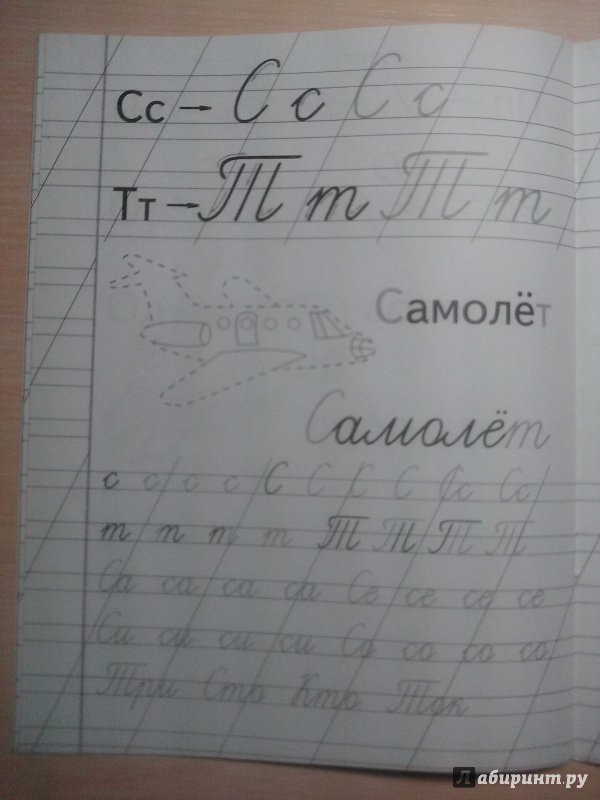 Сс → С с С с
Тт → Т т Т т
Самолёт
Самолёт
с с с с С С С С Сс Сс
т т т т Т Т Т Т
Са са са са Се се се се
Си си си си Со со со со
Три Сто Кто Ток
Лабиринт.ру